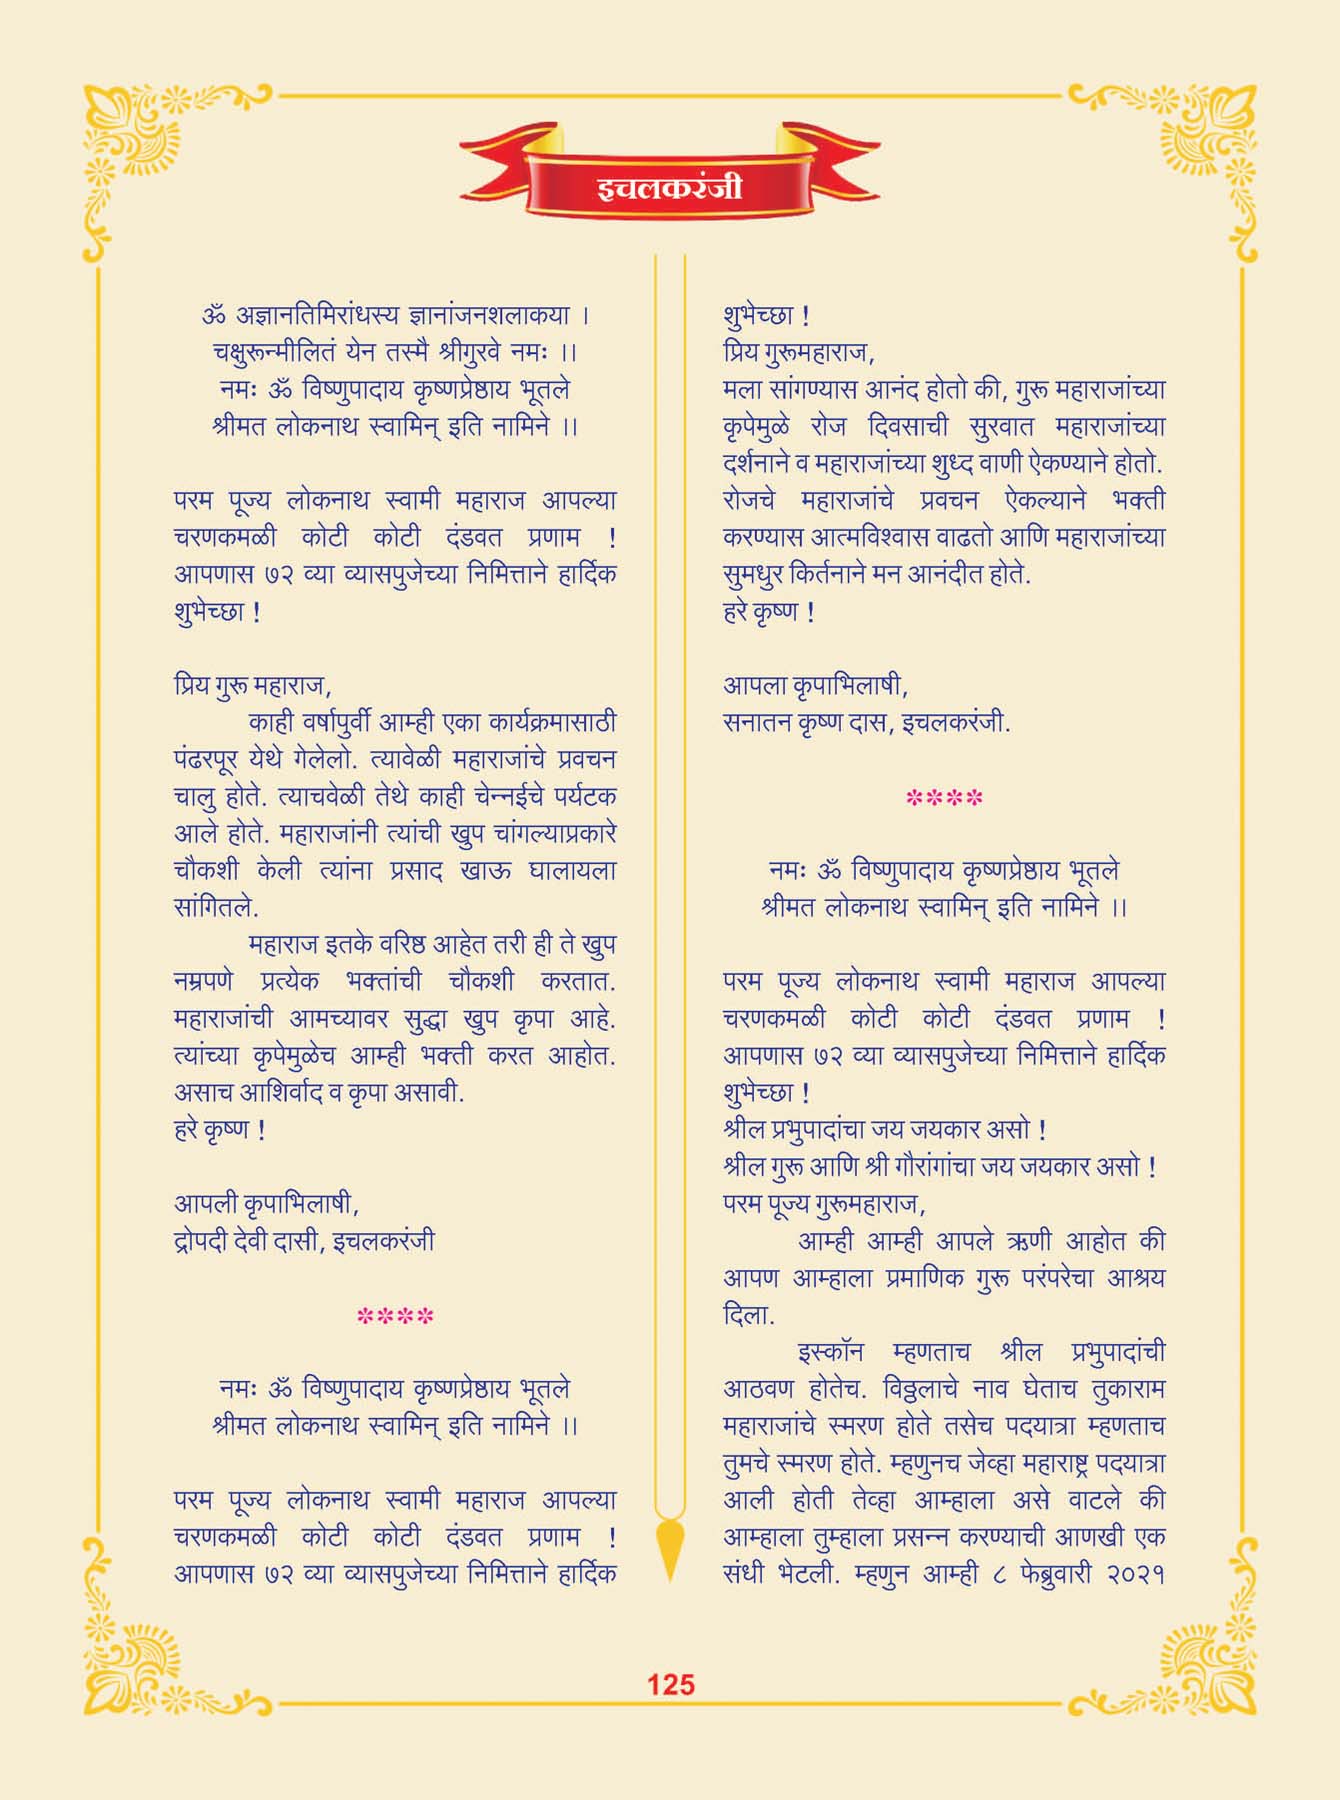 इचलकरंजी
ॐ अज्ञानतिमिरांधस्य ज्ञानांजनशलाकया ।
चक्षुरून्मीलितं येन तस्मै श्रीगुरवे नमः ।।
नमः ॐ विष्णुपादाय कृष्णप्रेष्ठाय भूतले
श्रीमत लोकनाथ स्वामिन् इति नामिने ।।
परम पूज्य लोकनाथ स्वामी महाराज आपल्या
चरणकमळी कोटी कोटी दंडवत प्रणाम !
आपणास ७२ व्या व्यासपुजेच्या निमित्ताने हार्दिक
शुभेच्छा !
प्रिय गुरू महाराज,
काही वर्षापुर्वी आम्ही एका कार्यक्रमासाठी
पंढरपूर येथे गेलेलो. त्यावेळी महाराजांचे प्रवचन
चालु होते. त्याचवेळी तेथे काही चेन्नईचे पर्यटक
आले होते. महाराजांनी त्यांची खुप चांगल्याप्रकारे
चौकशी केली त्यांना प्रसाद खाऊ घालायला
सांगितले.
महाराज इतके वरिष्ठ आहेत तरी ही ते खुप
नम्रपणे प्रत्येक भक्तांची चौकशी करतात.
महाराजांची आमच्यावर सुद्धा खुप कृपा आहे.
त्यांच्या कृपेमुळेच आम्ही भक्ती करत आहोत.
असाच आशिर्वाद व कृपा असावी.
हरे कृष्ण !
आपली कृपाभिलाषी,
द्रोपदी देवी दासी, इचलकरंजी
****
नमः ॐ विष्णुपादाय कृष्णप्रेष्ठाय भूतले
श्रीमत लोकनाथ स्वामिन् इति नामिने ।।
परम पूज्य लोकनाथ स्वामी महाराज आपल्या
चरणकमळी कोटी कोटी दंडवत प्रणाम !
आपणास ७२ व्या व्यासपुजेच्या निमित्ताने हार्दिक
शुभेच्छा !
प्रिय गुरूमहाराज,
मला सांगण्यास आनंद होतो की, गुरू महाराजांच्या
कृपेमुळे रोज दिवसाची सुरवात महाराजांच्या
दर्शनाने व महाराजांच्या शुध्द वाणी ऐकण्याने होतो.
रोजचे महाराजांचे प्रवचन ऐकल्याने भक्ती
करण्यास आत्मविश्वास वाढतो आणि महाराजांच्या
सुमधुर किर्तनाने मन आनंदीत होते.
हरे कृष्ण !
आपला कृपाभिलाषी,
सनातन कृष्ण दास, इचलकरंजी.
****
नमः ॐ विष्णुपादाय कृष्णप्रेष्ठाय भूतले
श्रीमत लोकनाथ स्वामिन् इति नामिने ।।
परम पूज्य लोकनाथ स्वामी महाराज आपल्या
चरणकमळी कोटी कोटी दंडवत प्रणाम !
आपणास ७२ व्या व्यासपुजेच्या निमित्ताने हार्दिक
शुभेच्छा !
श्रील प्रभुपादांचा जय जयकार असो !
श्रील गुरू आणि श्री गौरांगांचा जय जयकार असो !
परम पूज्य गुरूमहाराज,
आम्ही आम्ही आपले ऋणी आहोत की
आपण आम्हाला प्रमाणिक गुरू परंपरेचा आश्रय
दिला.
इस्कॉन म्हणताच श्रील प्रभुपादांची
आठवण होतेच. विठ्ठलाचे नाव घेताच तुकाराम
महाराजांचे स्मरण होते तसेच पदयात्रा म्हणताच
तुमचे स्मरण होते. म्हणुनच जेव्हा महाराष्ट्र पदयात्रा
आली होती तेव्हा आम्हाला असे वाटले की
आम्हाला तुम्हाला प्रसन्न करण्याची आणखी एक
संधी भेटली. म्हणुन आम्ही ८ फेब्रुवारी २०२१
125